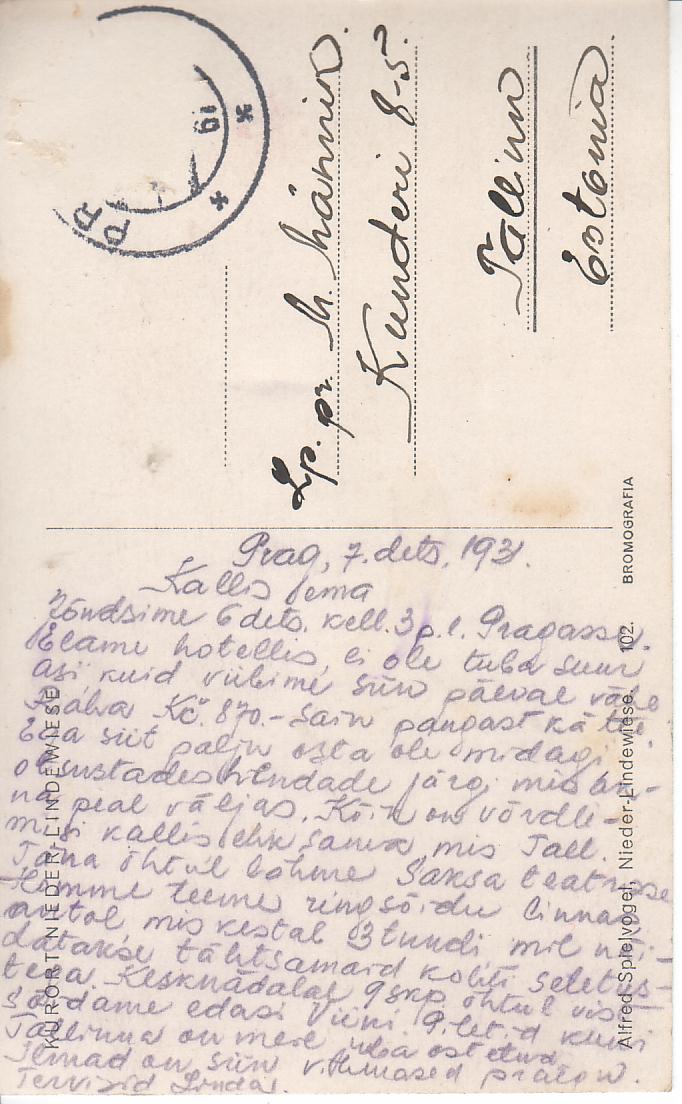 PR
19
Lp. pr. H. Männik.
Kunderi 8-5.
Tallinn
Estonia
KURORT NIEDER-LINDEWIESE
Alfred Spielvogel, Nieder-Lindewiese. 102. BROMOGRAFIA
Prag, 7. dets. 1931.
Kallis ema
Jõudsime 6 dets. kell. 3 p. l. Pragasse.
Elame hotellis, ei ole tuba suur
asi kuid viibime siin päeval vähe
Raha Kč. 870.- sain pangast kätte
Ega siit palju osta ole midagi,
otsustades hindade järgi mis ak-
na peal väljas. Kõik on võrdle-
misi kallis ehk sama mis Tall.
Täna õhtul lähme Saksa teatrisse
Homme teeme ringsõidu linnas
autol, mis kestab 3 tundi, mil näi-
datakse tähtsamaid kohti seletus-
tega. Kesknädalal 9 skp. õhtul
sõidame edasi Viini
Tallinna on meil juba ostetud.
Ilmad on siin vihmased praegu.
Tervisid Linda.